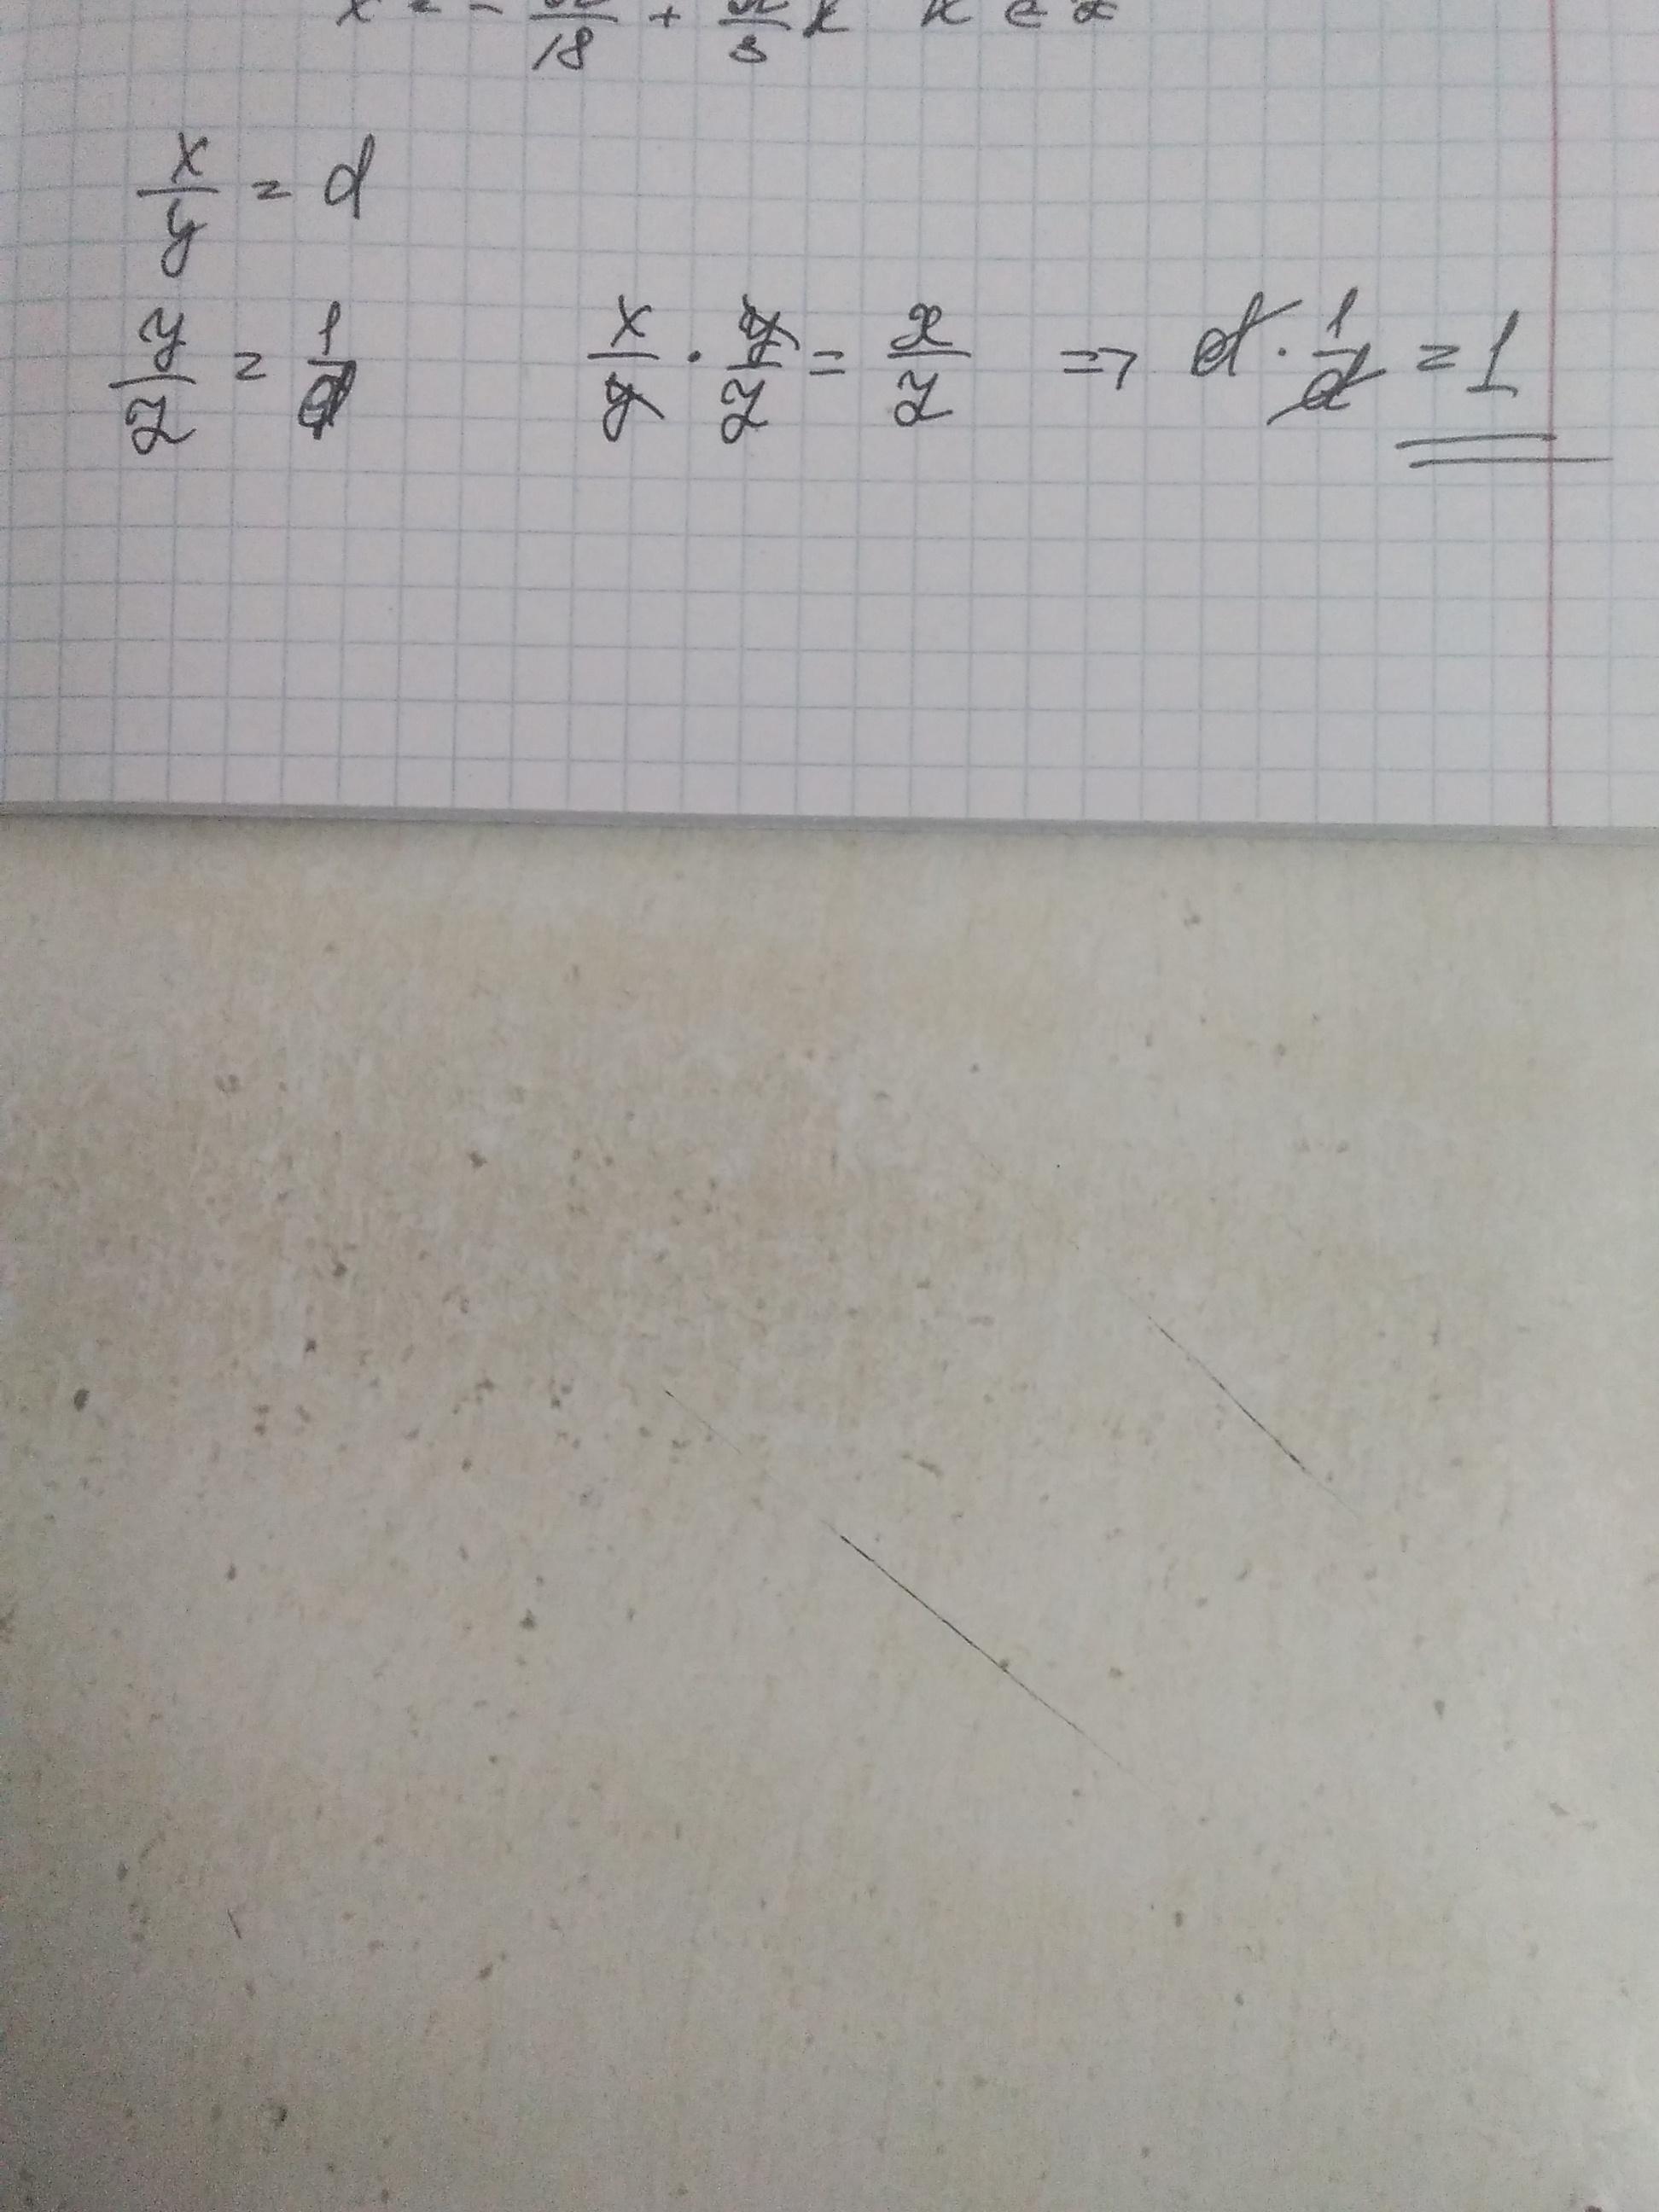 x = - π/18 + π/3 k k ∈ z
x/y = d
y/z = 1/d x/y · y/z = x/z => d · 1/d = 1